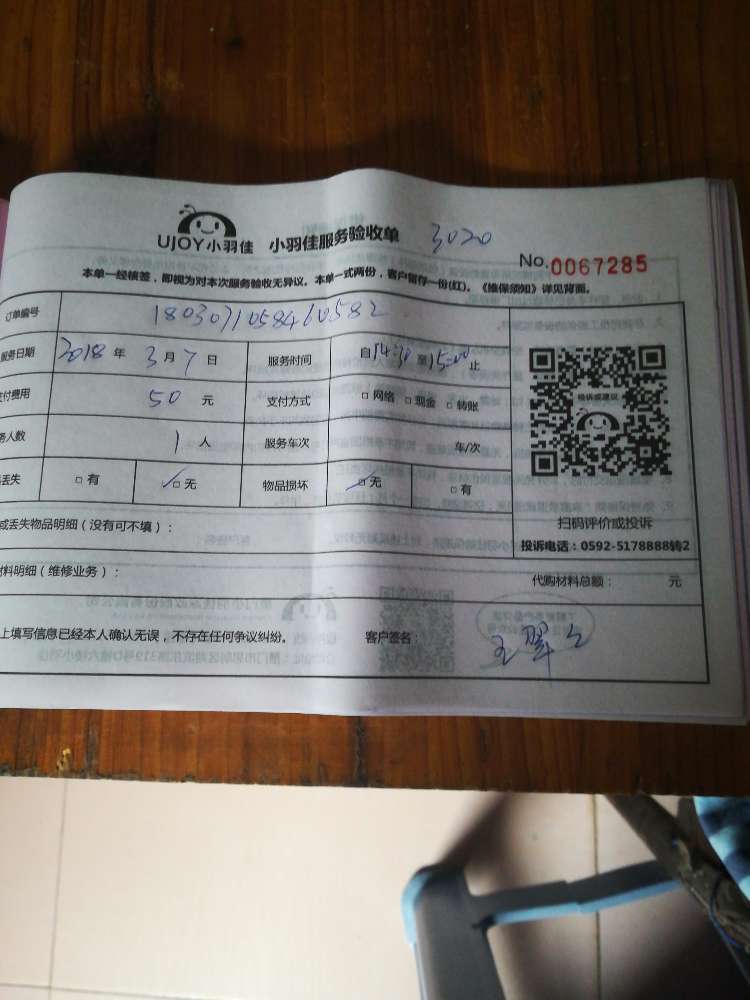 UJOY小羽佳 小羽佳服务验收单 3020
No.0067285
本单一经核签，即视为对本次服务验收无异议。本单一式两份，客户留存一份(红)。《维保须知》详见背面。
订单编号 1803071058460582
服务日期 2018 年 3 月 7 日 服务时间 自 14:30 至 15:00 止
付费用 50 元 支付方式 □ 网络 □ 现金 □ 转账
务人数 1 人 服务车次 车/次
丢失 □ 有 □ 无 物品损坏 □ 无 □ 有
投诉或建议
扫码评价或投诉
投诉电话：0592-5178888转2
或丢失物品明细（没有可不填）：
材料明细（维修业务）： 代购材料总额： 元
上填写信息已经本人确认无误，不存在任何争议纠纷。 客户签名：